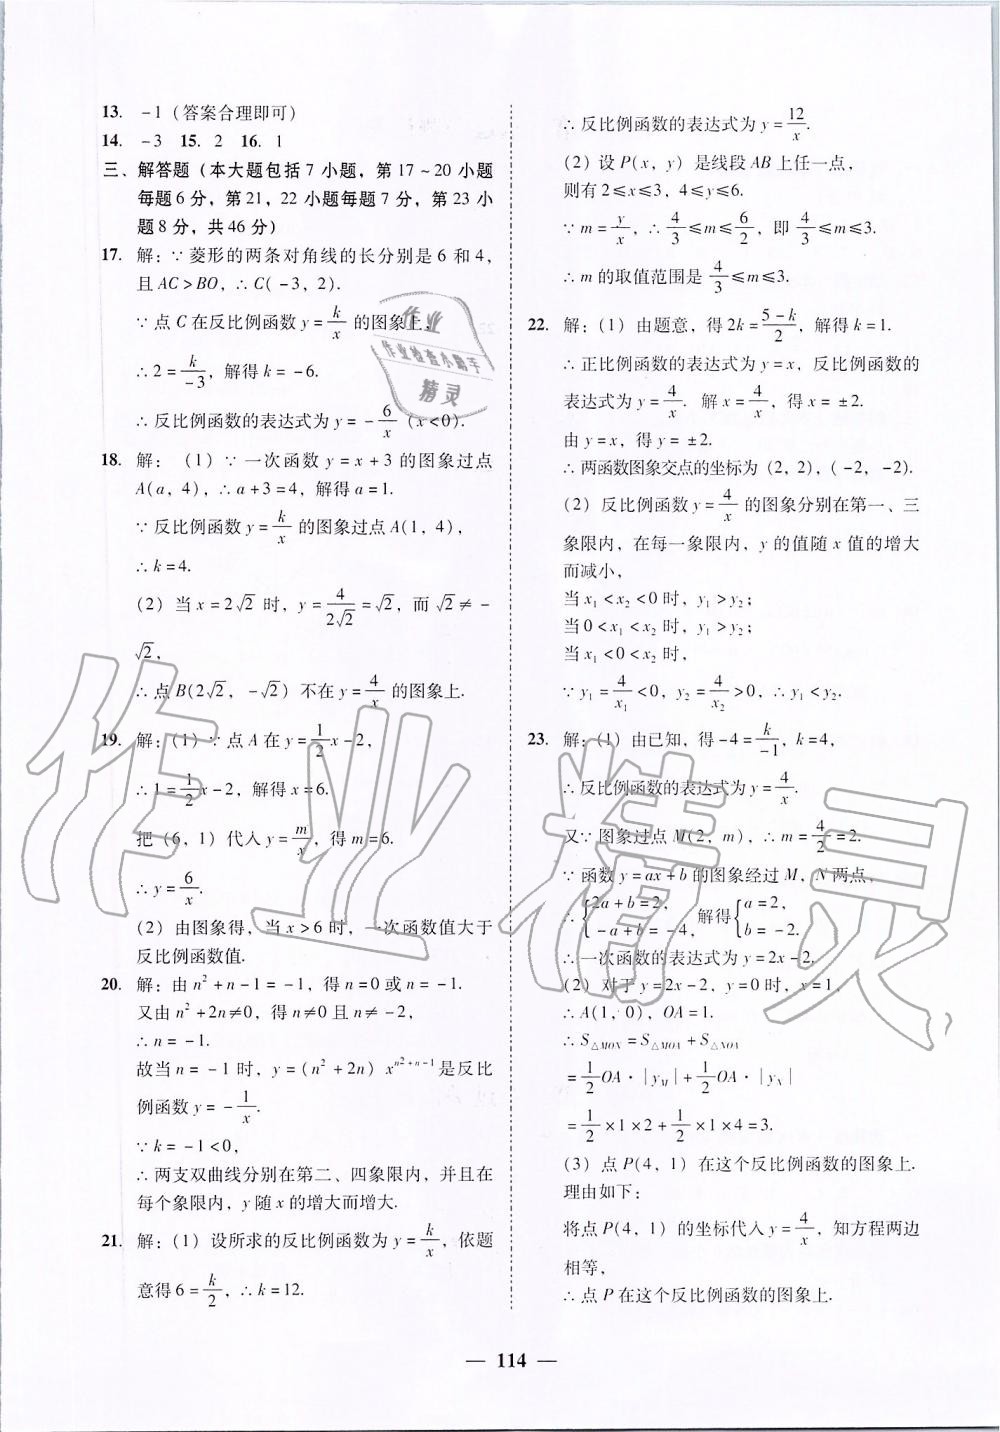 13. -1（答案合理即可）
14. -3  15. 2  16. 1
三、解答题（本大题包括 7 小题，第 17～20 小题
每题 6 分，第 21，22 小题每题 7 分，第 23 小
题 8 分，共 46 分）
17. 解：∵ 菱形的两条对角线的长分别是 6 和 4，
且 AC＞BO，∴ C(-3，2).
∵ 点 C 在反比例函数 y=k/x 的图象上，
∴ 2=k/-3，解得 k=-6.
∴ 反比例函数的表达式为 y=-6/x (x<0).
18. 解：（1）∵ 一次函数 y=x+3 的图象过点
A(a，4)，∴ a+3=4，解得 a=1.
∵ 反比例函数 y=k/x 的图象过点 A(1，4)，
∴ k=4.
（2）当 x=2√2 时，y=4/2√2=√2，而 √2≠-
√2，
∴ 点 B(2√2，-√2) 不在 y=4/x 的图象上.
19. 解：（1）∵ 点 A 在 y=1/2x-2，
∴ 1=1/2x-2，解得 x=6.
把（6，1）代入 y=m/x，得 m=6.
∴ y=6/x.
（2）由图象得，当 x>6 时，一次函数值大于
反比例函数值.
20. 解：由 n²+n-1=-1，得 n=0 或 n=-1.
又由 n²+2n≠0，得 n≠0 且 n≠-2，
∴ n=-1.
故当 n=-1 时，y=(n²+2n) xⁿ²⁺ⁿ⁻¹ 是反比
例函数 y=-1/x.
∵ k=-1<0，
∴ 两支双曲线分别在第二、四象限内，并且在
每个象限内，y 随 x 的增大而增大.
21. 解：（1）设所求的反比例函数为 y=k/x，依题
意得 6=k/2，∴ k=12.
∴ 反比例函数的表达式为 y=12/x.
（2）设 P(x，y) 是线段 AB 上任一点，
则有 2≤x≤3，4≤y≤6.
∵ m=y/x，∴ 4/3≤m≤6/2，即 4/3≤m≤3.
∴ m 的取值范围是 4/3≤m≤3.
22. 解：（1）由题意，得 2k=5-k/2，解得 k=1.
∴ 正比例函数的表达式为 y=x，反比例函数的
表达式为 y=4/x. 解 x=4/x，得 x=±2.
由 y=x，得 y=±2.
∴ 两函数图象交点的坐标为（2，2），(-2，-2).
（2）反比例函数 y=4/x 的图象分别在第一、三
象限内，在每一象限内，y 的值随 x 值的增大
而减小，
当 x₁<x₂<0 时，y₁>y₂；
当 0<x₁<x₂ 时，y₁>y₂；
当 x₁<0<x₂ 时，
∵ y₁=4/x₁<0，y₂=4/x₂>0，∴ y₁<y₂.
23. 解：（1）由已知，得 -4=k/-1，k=4，
∴ 反比例函数的表达式为 y=4/x.
又∵ 图象过点 M(2，m)，∴ m=4/2=2.
∵ 函数 y=ax+b 的图象经过 M，N 两点，
∴ {2a+b=2，-a+b=-4， 解得 {a=2，b=-2.
∴ 一次函数的表达式为 y=2x-2.
（2）对于 y=2x-2，y=0 时，x=1，
∴ A(1，0)，OA=1.
∴ S△MON=S△MOA+S△NOA
=1/2OA·|yM|+1/2OA·|yN|
=1/2×1×2+1/2×1×4=3.
（3）点 P(4，1) 在这个反比例函数的图象上.
理由如下：
将点 P(4，1) 的坐标代入 y=4/x，知方程两边
相等，
∴ 点 P 在这个反比例函数的图象上.
— 114 —
作业
作业检查小帮手
精灵
作业精灵